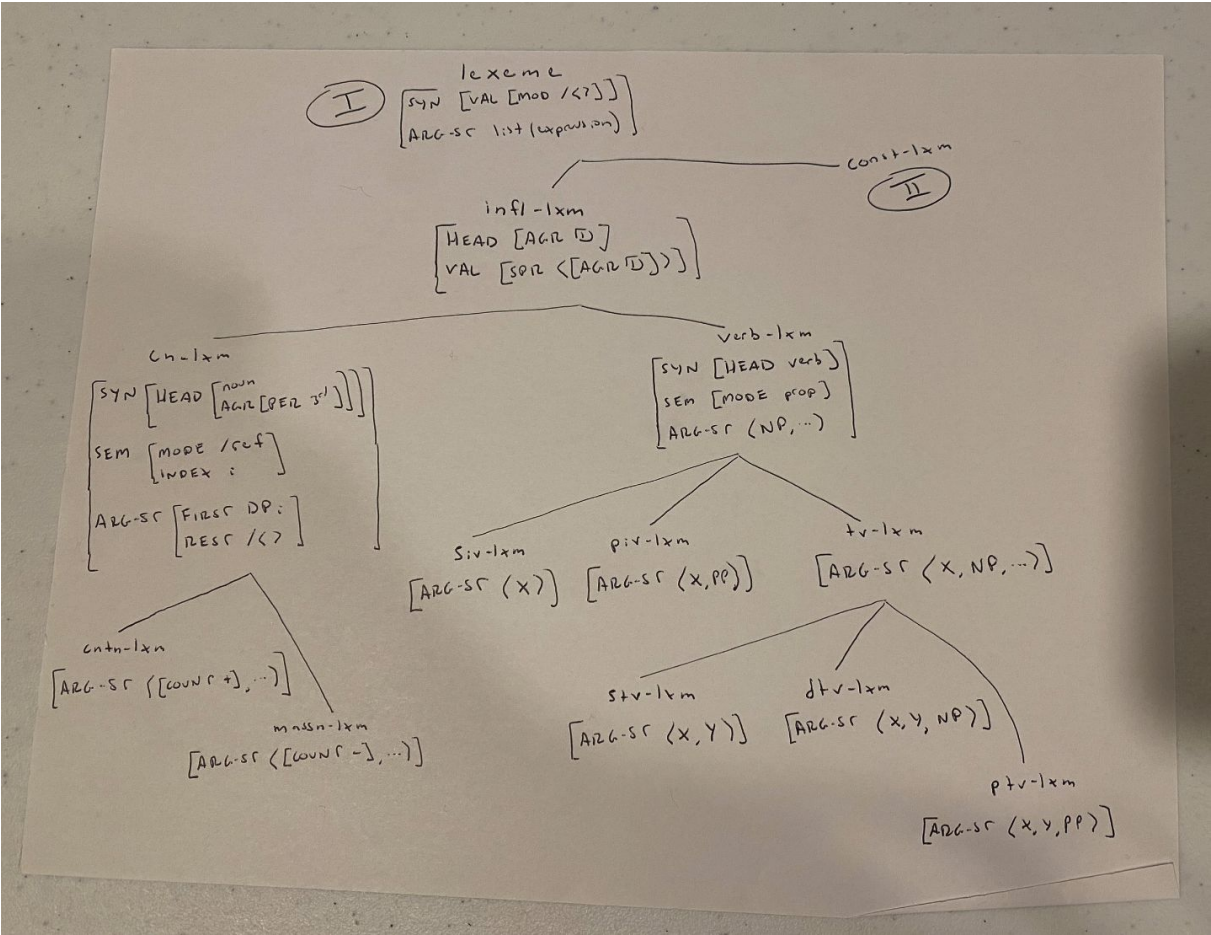 I
lexeme
[SYN [VAL [MOD /< >]]
ARG-ST list(expression)]
const-lxm
II
infl-lxm
[HEAD [AGR 1]
VAL [SPR <[AGR 1]>]]
cn-lxm
[SYN [HEAD [noun
AGR [PER 3rd]]]
SEM [MODE /ref
INDEX i]
ARG-ST [FIRST DPi
REST /< >]]
verb-lxm
[SYN [HEAD verb]
SEM [MODE prop]
ARG-ST <NP,...>]
siv-lxm
[ARG-ST <X>]
piv-lxm
[ARG-ST <X,PP>]
tv-lxm
[ARG-ST <X, NP,...>]
cntn-lxm
[ARG-ST <[COUNT +],...>]
massn-lxm
[ARG-ST <[COUNT -],...>]
stv-lxm
[ARG-ST <X,Y>]
dtv-lxm
[ARG-ST <X,Y,NP>]
ptv-lxm
[ARG-ST <X,Y,PP>]